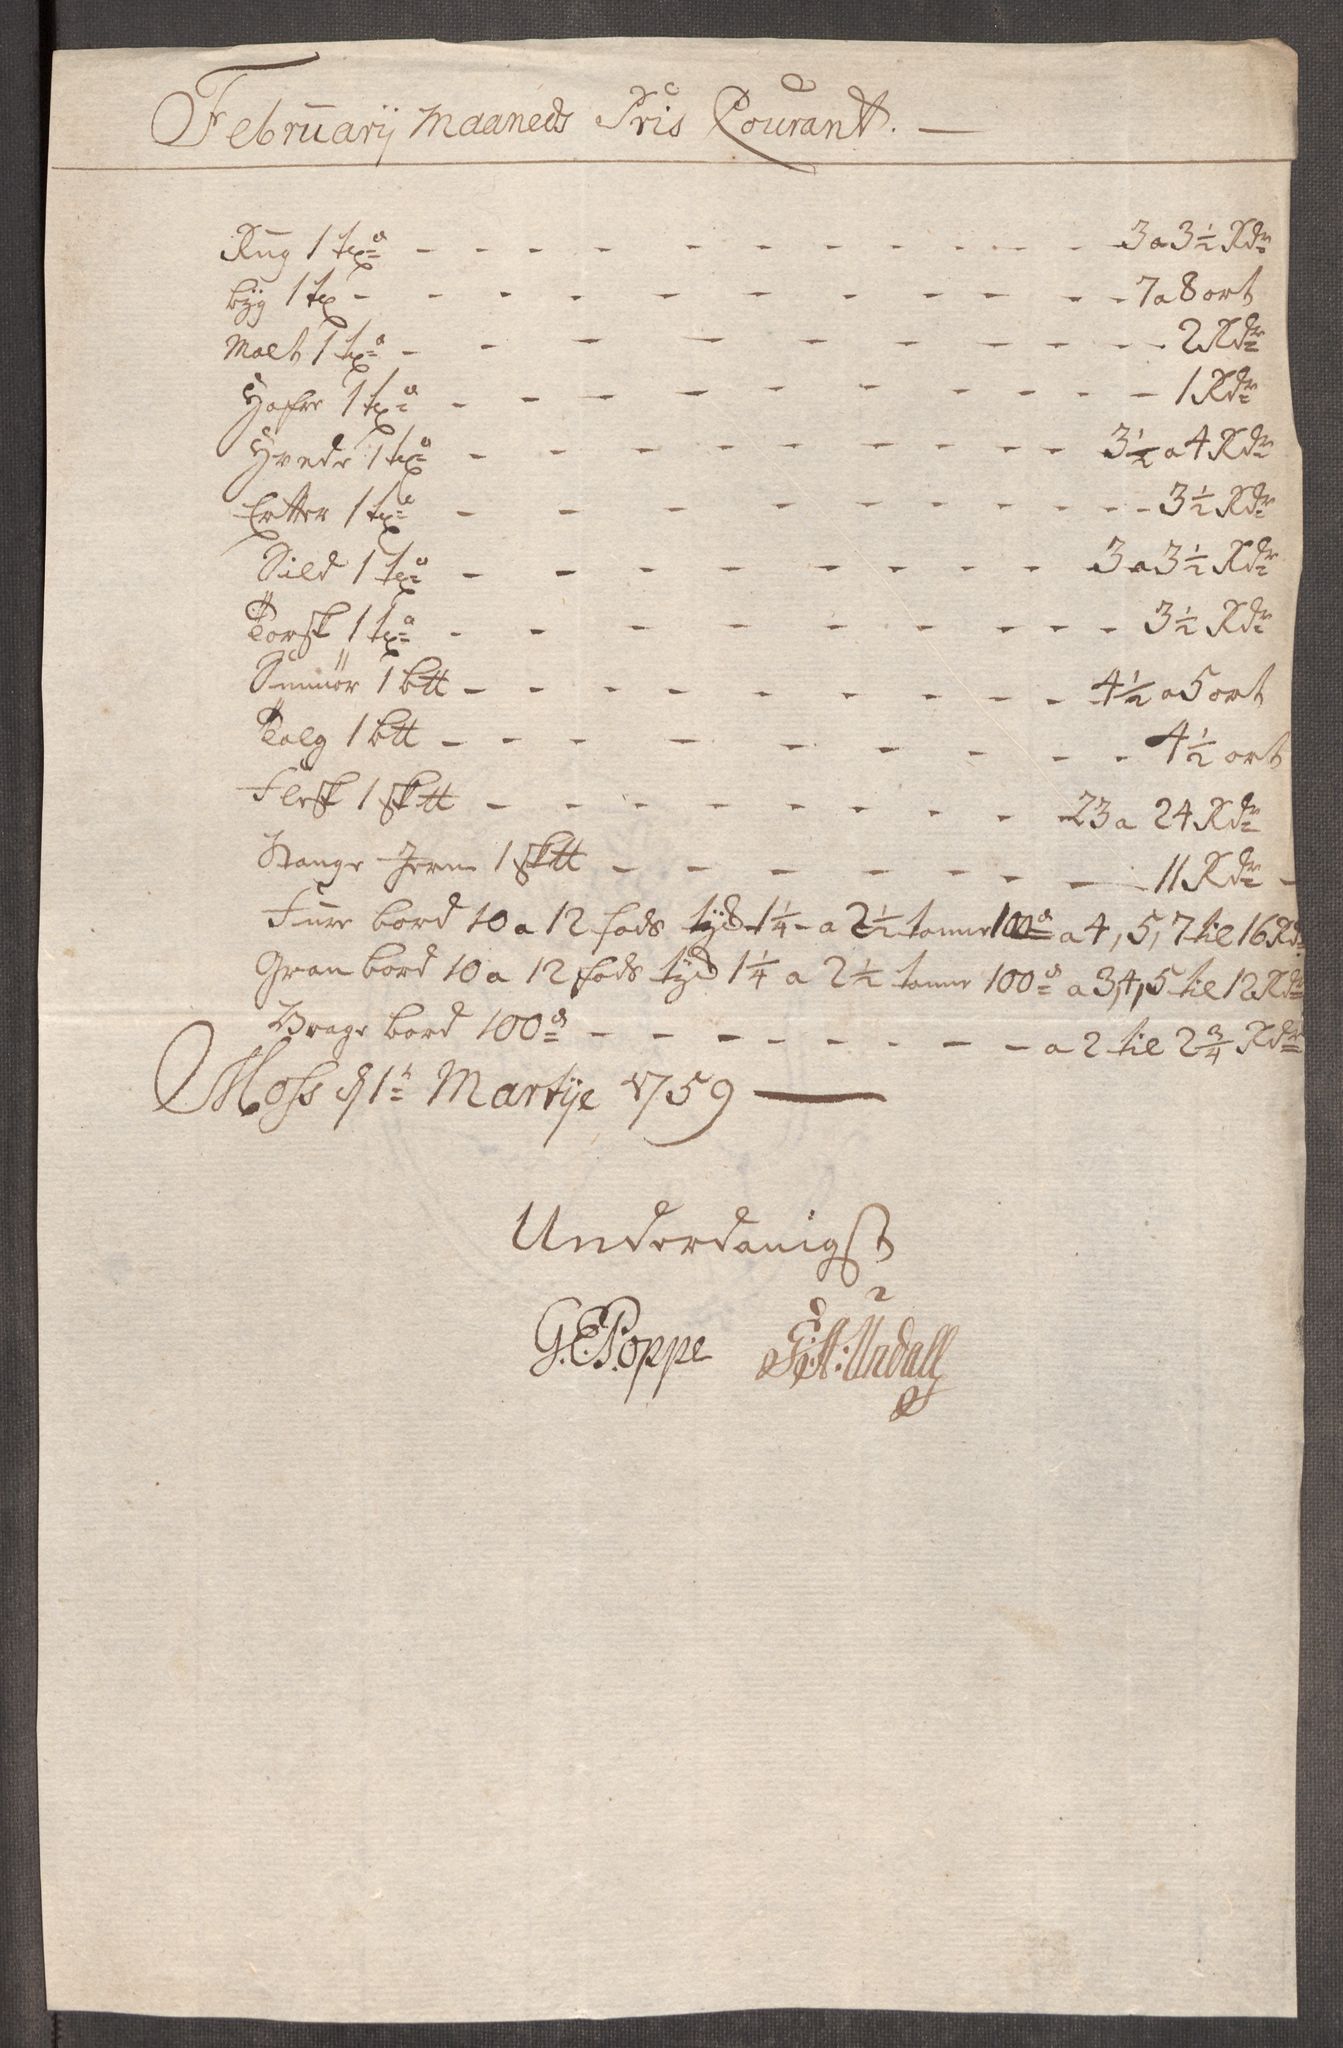 Februarij Maaneds Pris Courant. —
Rug 1 tøn - - - - - - - - - - - 3 a 3½ Rdr
byg 1 tø - - - - - - - - - - - 7 a 8 ort
Malt 1 tøn - - - - - - - - - - 2 Rdr
Hafre 1 tøn - - - - - - - - - - 1 Rdr
Hvede 1 tøn - - - - - - - - - 3½ a 4 Rdr
Ertter 1 tøn - - - - - - - - - - 3½ Rdr
Sild 1 tøn - - - - - - - - - 3 a 3½ Rdr
Torsk 1 tøn - - - - - - - - - - 3½ Rdr
Smiør 1 btt - - - - - - - - - - 4½ a 5 ort
Talg 1 btt - - - - - - - - - 4½ ort
Flesk 1 sktt - - - - - - - - - 23 a 24 Rdr
Stange Jern 1 sktt - - - - - - - 11 Rdr -
Fure bord 10 a 12 fods tyd 1¼ a 2½ tomme 100d a 4, 5, 7 til 16 Rdr
Gran bord 10 a 12 fods tyd 1¼ a 2½ tomme 100d a 3, 4, 5 til 12 Rdr
Vrage bord 100d - - - - - - - - - a 2 til 2¾ Rdr
Moss d 1te Martije 1759 —
Underdanigst
G.E.Poppe F:A:Undall